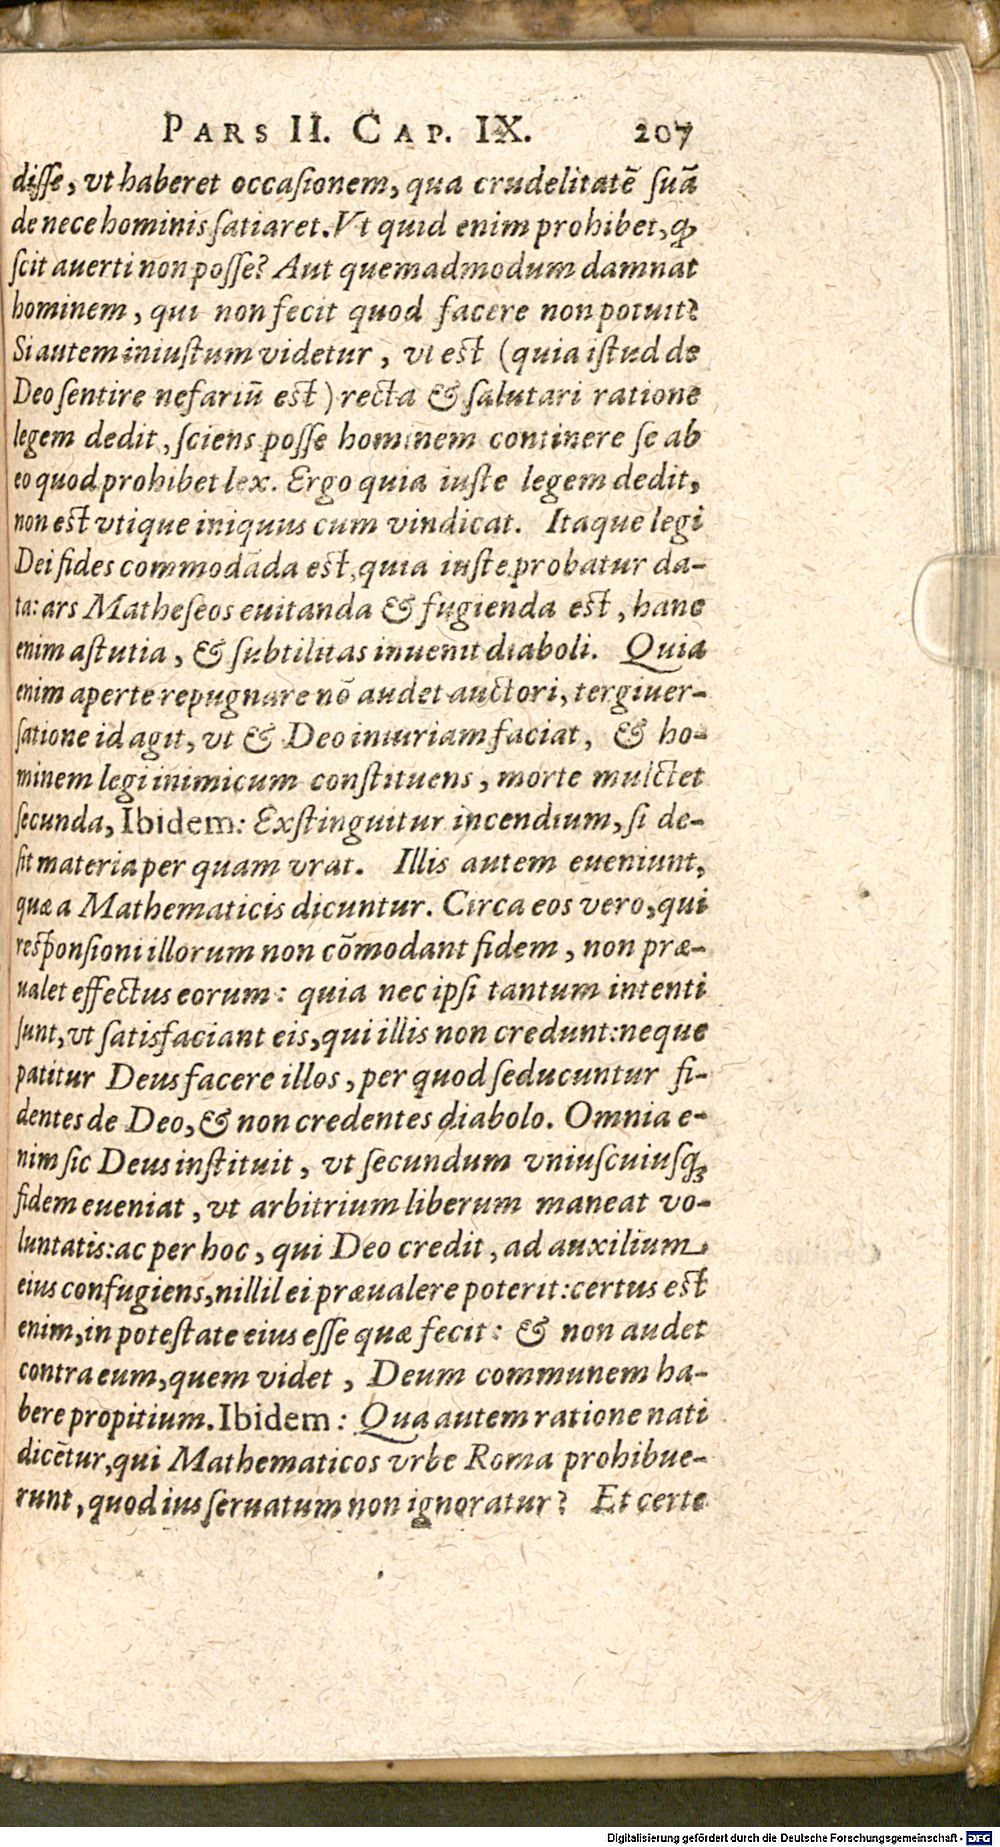 PARS II. CAP. IX. 207
diſſe, vt haberet occaſionem, qua crudelitatē ſuā
de nece hominis ſatiaret. Vt quid enim prohibet, qꝫ
ſcit auerti non poſſe? Aut quemadmodum damnat
hominem, qui non fecit quod facere non potuit?
Si autem iniuſtum videtur, vt eſt (quia iſtud de
Deo ſentire nefariū eſt) recta & ſalutari ratione
legem dedit, ſciens poſſe hominem continere ſe ab
eo quod prohibet lex. Ergo quia iuſte legem dedit,
non eſt vtique iniquus cum vindicat. Itaque legi
Dei fides commodāda eſt, quia iuſte probatur da-
ta: ars Matheſeos euitanda & fugienda eſt, hanc
enim aſtutia, & ſubtilitas inuenit diaboli. Quia
enim aperte repugnare nō audet auctori, tergiuer-
ſatione id agit, vt & Deo iniuriam faciat, & ho-
minem legi inimicum conſtituens, morte mulctet
ſecunda, Ibidem: Exſtinguitur incendium, ſi de-
ſit materia per quam vrat. Illis autem eueniunt,
quæ a Mathematicis dicuntur. Circa eos vero, qui
reſponſioni illorum non cōmodant fidem, non præ-
ualet effectus eorum: quia nec ipſi tantum intenti
ſunt, vt ſatisfaciant eis, qui illis non credunt: neque
patitur Deus facere illos, per quod ſeducuntur fi-
dentes de Deo, & non credentes diabolo. Omnia e-
nim ſic Deus inſtituit, vt ſecundum vniuſcuiuſqꝫ
fidem eueniat, vt arbitrium liberum maneat vo-
luntatis: ac per hoc, qui Deo credit, ad auxilium
eius confugiens, nillil ei præualere poterit: certus eſt
enim, in poteſtate eius eſſe quæ fecit: & non audet
contra eum, quem videt, Deum communem ha-
bere propitium. Ibidem: Qua autem ratione nati
dicētur, qui Mathematicos vrbe Roma prohibue-
runt, quod ius ſeruatum non ignoratur? Et certe
Digitalisierung gefördert durch die Deutsche Forschungsgemeinschaft - DFG